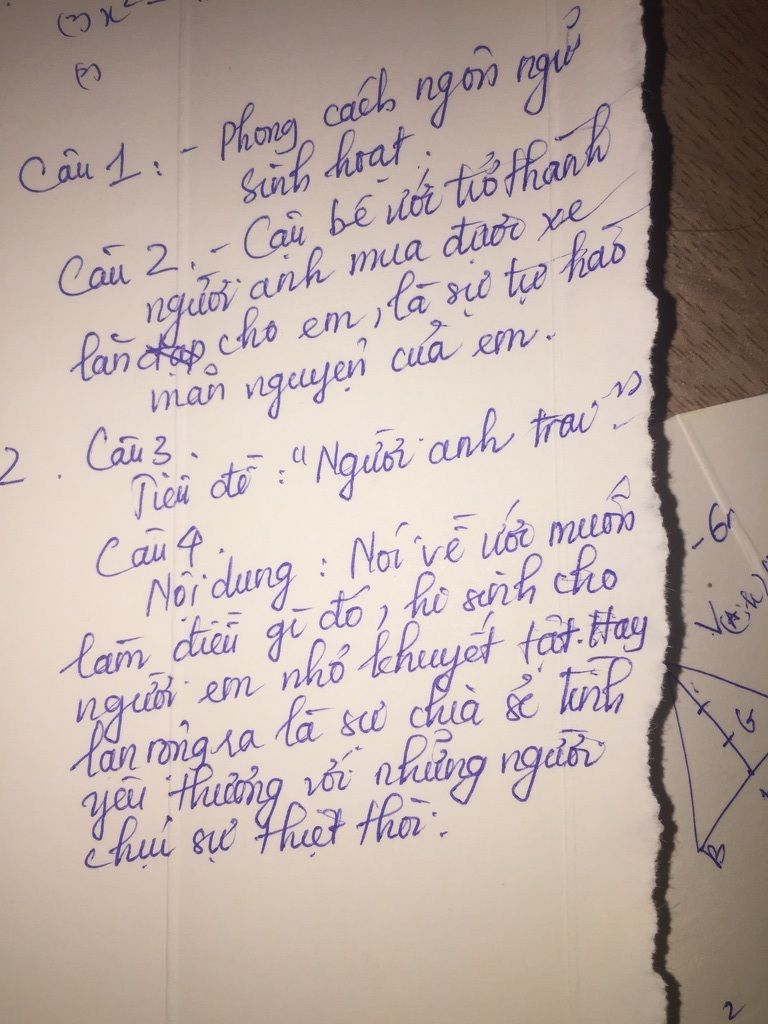 (2) x²
Câu 1: - Phong cách ngôn ngữ
sinh hoạt.
Câu 2. - Cậu bé ước trở thành
người anh mua được xe
lăn cho em, là sự tự hào
mãn nguyện của em.
2. Câu 3.
Tiêu đề: "Người anh trai"
Câu 4.
Nội dung: Nói về ước muốn
làm điều gì đó, hi sinh cho
người em nhỏ khuyết tật. Hay
lan rộng ra là sự chia sẻ tình
yêu thương với những người
chịu sự thiệt thòi.
G
B
2